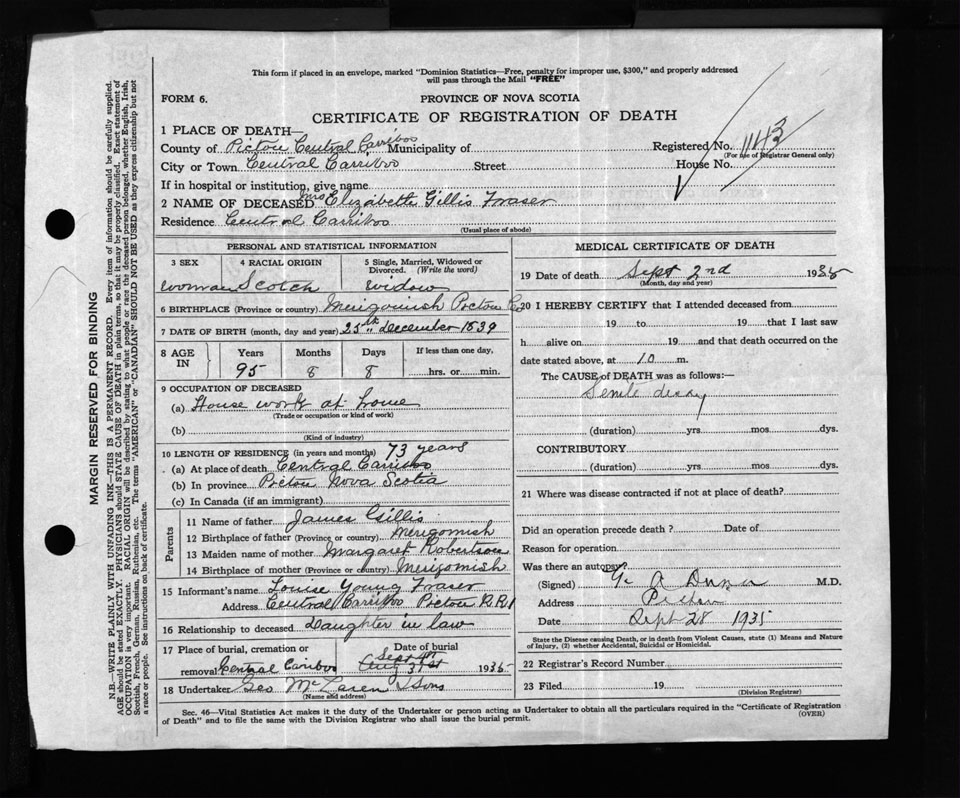 This form if placed in an envelope, marked "Dominion Statistics—Free, penalty for improper use, $300," and properly addressed
will pass through the Mail "FREE"
FORM 6.
PROVINCE OF NOVA SCOTIA
CERTIFICATE OF REGISTRATION OF DEATH
1 PLACE OF DEATH—
County of Pictou Central Carriboo Municipality of Registered No. 1143
(For use of Registrar General only)
City or Town Central Carriboo Street House No.
If in hospital or institution, give name
2 NAME OF DECEASED Mrs Elizabeth Gillis Fraser
Residence Central Carriboo
(Usual place of abode)
PERSONAL AND STATISTICAL INFORMATION
3 SEX 4 RACIAL ORIGIN 5 Single, Married, Widowed or Divorced. (Write the word)
woman Scotch widow
6 BIRTHPLACE (Province or country) Merigomish Pictou Co
7 DATE OF BIRTH (month, day and year) 25th December 1839
8 AGE IN Years Months Days If less than one day,
95 8 8 hrs. or min.
9 OCCUPATION OF DECEASED
(a) House work at home
(Trade or occupation or kind of work)
(b)
(Kind of industry)
10 LENGTH OF RESIDENCE (in years and months) 73 years
(a) At place of death Central Carriboo
(b) In province Pictou Nova Scotia
(c) In Canada (if an immigrant)
Parents
11 Name of father James Gillis
12 Birthplace of father (Province or country) Merigomish
13 Maiden name of mother Margaret Robertson
14 Birthplace of mother (Province or country) Merigomish
15 Informant's name Louise Young Fraser
Address Central Carriboo Pictou R.R1
16 Relationship to deceased Daughter in law
17 Place of burial, cremation or removal Central Cariboo Date of burial Sept 4th Aug 31st 1935
18 Undertaker Geo McLaren & Sons
(Name and address)
MEDICAL CERTIFICATE OF DEATH
19 Date of death Sept 2nd 1935
(Month, day and year)
20 I HEREBY CERTIFY that I attended deceased from
19 to 19 that I last saw
h alive on 19 and that death occurred on the
date stated above, at 10 m.
The CAUSE OF DEATH was as follows:—
Senile decay
(duration) yrs mos dys.
CONTRIBUTORY
(duration) yrs mos dys.
21 Where was disease contracted if not at place of death?
Did an operation precede death? Date of
Reason for operation
Was there an autopsy?
(Signed) A M.D.
Address Pictou
Date Sept 28 1935
State the Disease causing Death, or in death from Violent Causes, state (1) Means and Nature
of Injury, (2) whether Accidental, Suicidal or Homicidal.
22 Registrar's Record Number
23 Filed 19
(Division Registrar)
Sec. 46—Vital Statistics Act makes it the duty of the Undertaker or person acting as Undertaker to obtain all the particulars required in the "Certificate of Registration
of Death" and to file the same with the Division Registrar who shall issue the burial permit.
(OVER)
MARGIN RESERVED FOR BINDING
N.B.—WRITE PLAINLY WITH UNFADING INK—THIS IS A PERMANENT RECORD. Every item of information should be carefully supplied.
AGE should be stated EXACTLY. PHYSICIANS should STATE CAUSE OF DEATH in plain terms, so that it may be properly classified. Exact statement of
OCCUPATION is very important. RACIAL ORIGIN will be described by stating to what people or race the deceased person belonged, whether English, Irish,
Scottish, French, German, Russian, Ruthenian, etc. The terms "AMERICAN" or "CANADIAN" SHOULD NOT BE USED as they express citizenship but not
a race or people. See instructions on back of certificate.